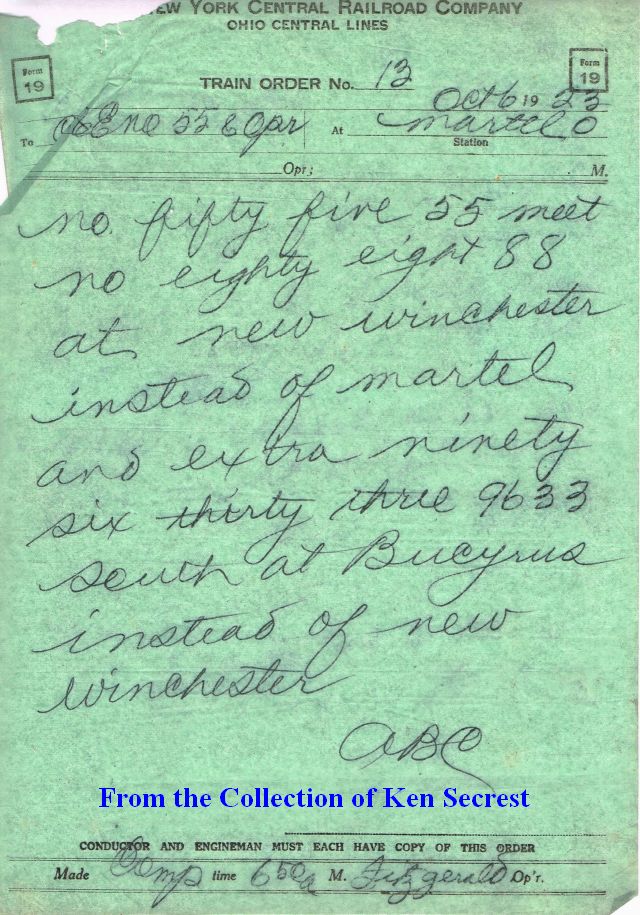 NEW YORK CENTRAL RAILROAD COMPANY
OHIO CENTRAL LINES
Form 19
Form 19
TRAIN ORDER No. 13
Oct 6 1923
To C&E no 55 & Opr At Martel O
Station
Opr; M.
no. fifty five 55 meet
no eighty eight 88
at new winchester
instead of martel
and extra ninety
six thirty three 9633
south at Bucyrus
instead of new
winchester
From the Collection of Ken Secrest
CONDUCTOR AND ENGINEMAN MUST EACH HAVE COPY OF THIS ORDER
Made Comp time 650a M. Fitzgerald Op'r.